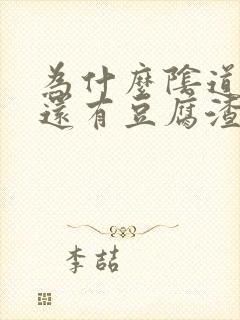 為什麼陰道
還有豆腐渣
李喆